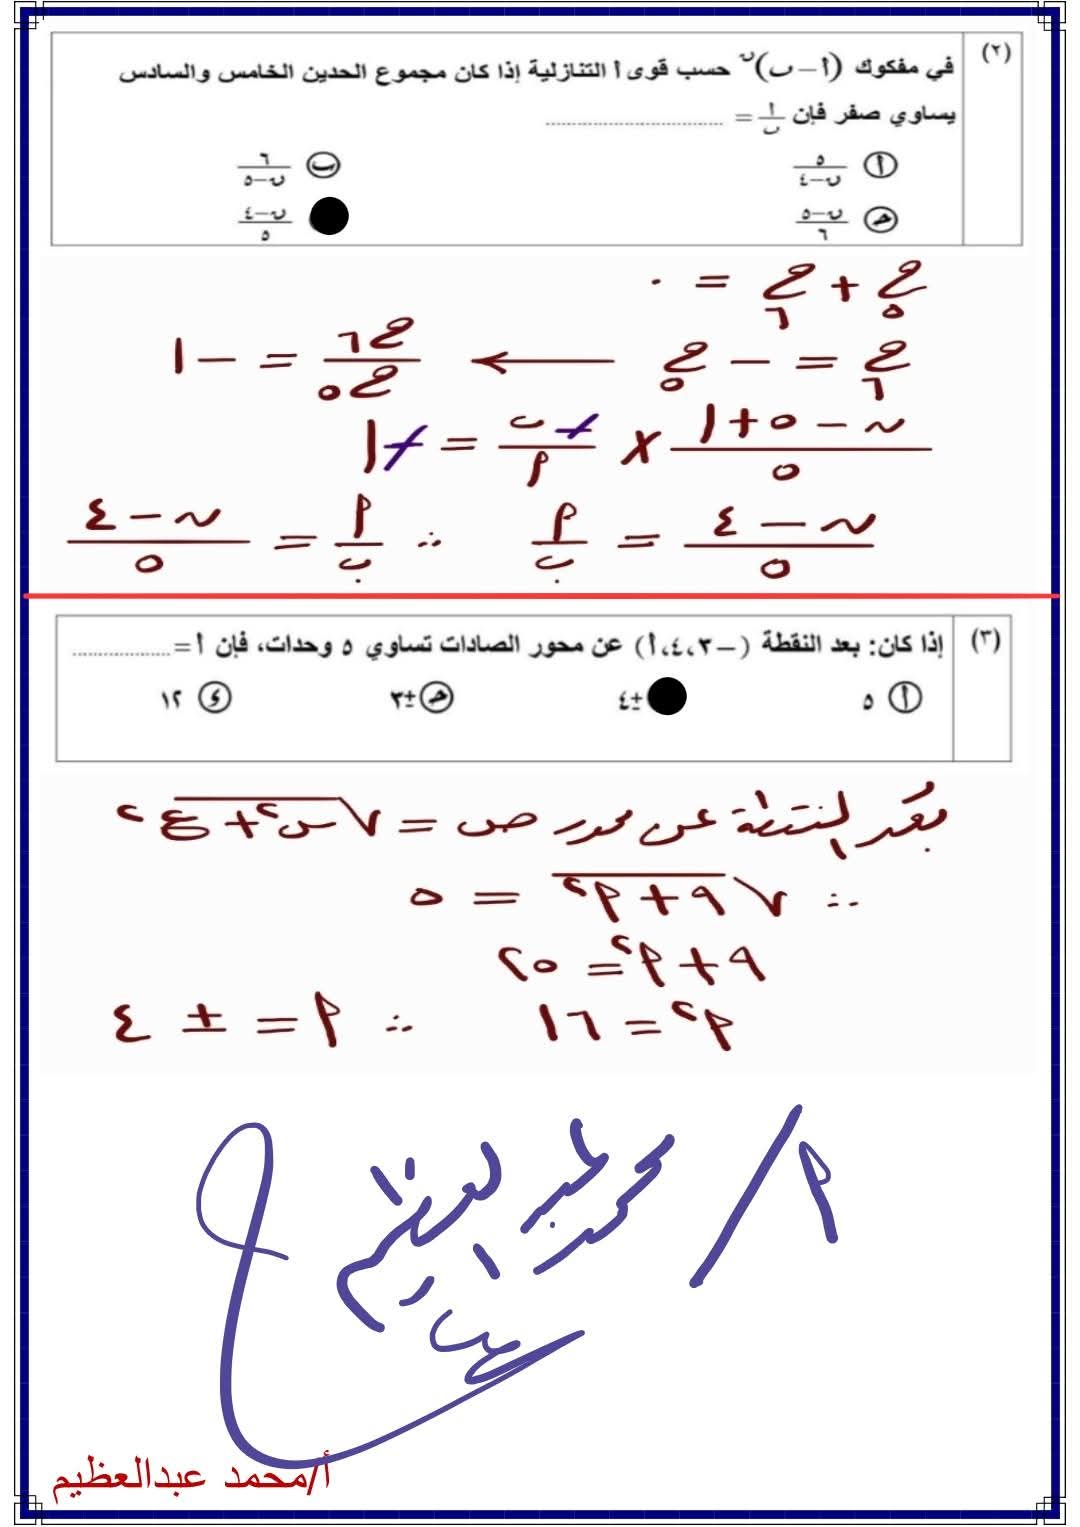 (٢)
في مفكوك (أ – ب)ن حسب قوى أ التنازلية إذا كان مجموع الحدين الخامس والسادس
يساوي صفر فإن أ/ب = ..............................
أ ٥/(ن–٤) ب ٦/(ن–٥)
ج (ن–٥)/٦ (ن–٤)/٥
ح٥ + ح٦ = ٠
ح٦ = – ح٥ ← ح٦/ح٥ = –١
(ن – ٥ + ١)/٥ × –ب/أ = –١
(ن – ٤)/٥ = أ/ب ∴ أ/ب = (ن – ٤)/٥
(٣)
إذا كان: بعد النقطة (–٣،٤،أ) عن محور الصادات تساوي ٥ وحدات، فإن أ = ..................
أ ٥ ±٤ ج ±٣ د ١٢
بعد النقطة عن محور ص = √(س٢ + ع٢)
∴ √(٩ + أ٢) = ٥
٩ + أ٢ = ٢٥
أ٢ = ١٦ ∴ أ = ± ٤
أ/ محمد عبد العظيم
أ/محمد عبدالعظيم